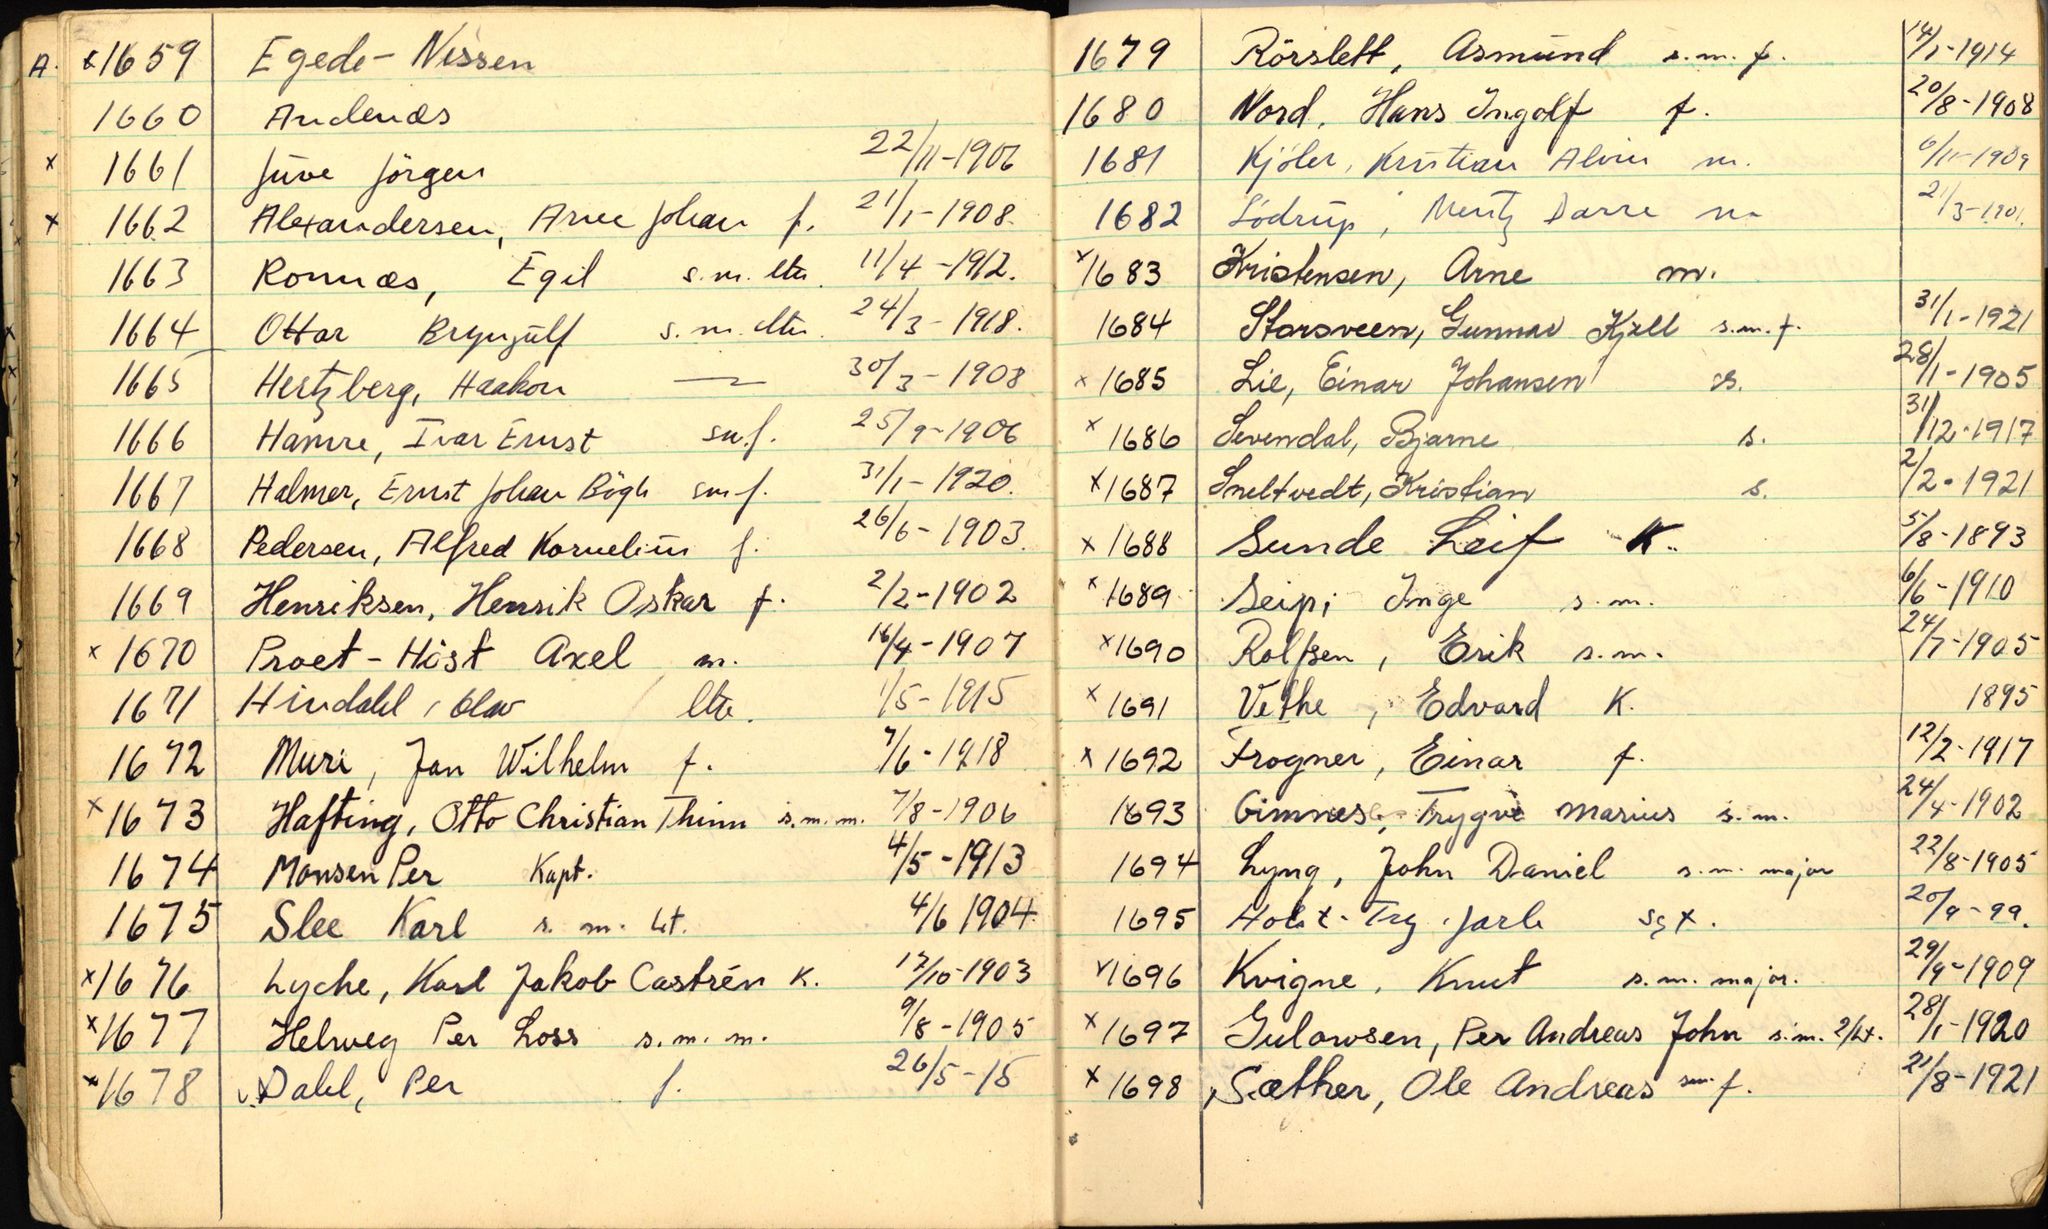 A. x 1659 Egede-Nissen
1660 Andenæs
x 1661 Juve Jörgen 22/11-1906
x 1662 Alexandersen, Arne Johan f. 21/1-1908.
1663 Romnæs, Egil s.m. ltn. 11/4-1912.
1664 Ottar Brynjulf s.m. ltn. 24/3-1918.
1665 Hertzberg, Haakon — 30/3-1908
1666 Hamre, Ivar Ernst sm.f. 25/9-1906
1667 Halmer, Ernst Johan Bögh sm f. 31/1-1920.
1668 Pedersen, Alfred Kornelius f. 26/6-1903.
1669 Henriksen, Henrik Oskar f. 2/2-1902
x 1670 Proet-Höst Axel m. 16/4-1907
1671 Hindahl, Olav ltn. 1/5-1915
1672 Muri, Jan Wilhelm f. 7/6-1918
x 1673 Hafting, Otto Christian Thinn s.m.m. 7/8-1906
1674 Monsen Per Kapt. 4/5-1913
1675 Slee Karl s.m. Lt. 4/6 1904.
x 1676 Lyche, Karl Jakob Castrén K. 17/10-1903
x 1677 Helweg Per Loss s.m.m. 9/8-1905
x 1678 Dahl, Per f. 26/5-15
1679 Rörslett, Asmund s.m.f. 14/1-1914
1680 Nord, Hans Ingolf f. 20/8-1908
1681 Kjöler, Kristian Alvin m. 6/11-1909
1682 Lödrup, Mentz Darre m 21/3-1901.
x 1683 Kristensen, Arne m.
1684 Storsveen, Gunnar Kjell s.m.f. 31/1-1921
x 1685 Lie, Einar Johansen s. 28/11-1905
x 1686 Sevendal, Bjarne s. 31/12-1917
x 1687 Sneltvedt, Kristian s. 2/2-1921
x 1688 Sunde Leif K.. 5/8-1893
x 1689 Seip, Inge s.m. 6/6-1910
x 1690 Rolfsen, Erik s.m. 24/7-1905
x 1691 Vethe, Edvard K. 1895
x 1692 Frogner, Einar f. 12/2-1917
1693 Gimnes, Trygve Marius s.m. 24/4-1902
1694 Lyng, John Daniel s.m. major 22/8-1905
1695 Holst-Try. Jarle sgt. 20/9-99.
x 1696 Kvigne, Knut s.m. major. 29/9-1909
x 1697 Gulowsen, Per Andreas John s.m. 2/Lt. 28/1-1920
x 1698 Sæther, Ole Andreas sm. f. 21/8-1921